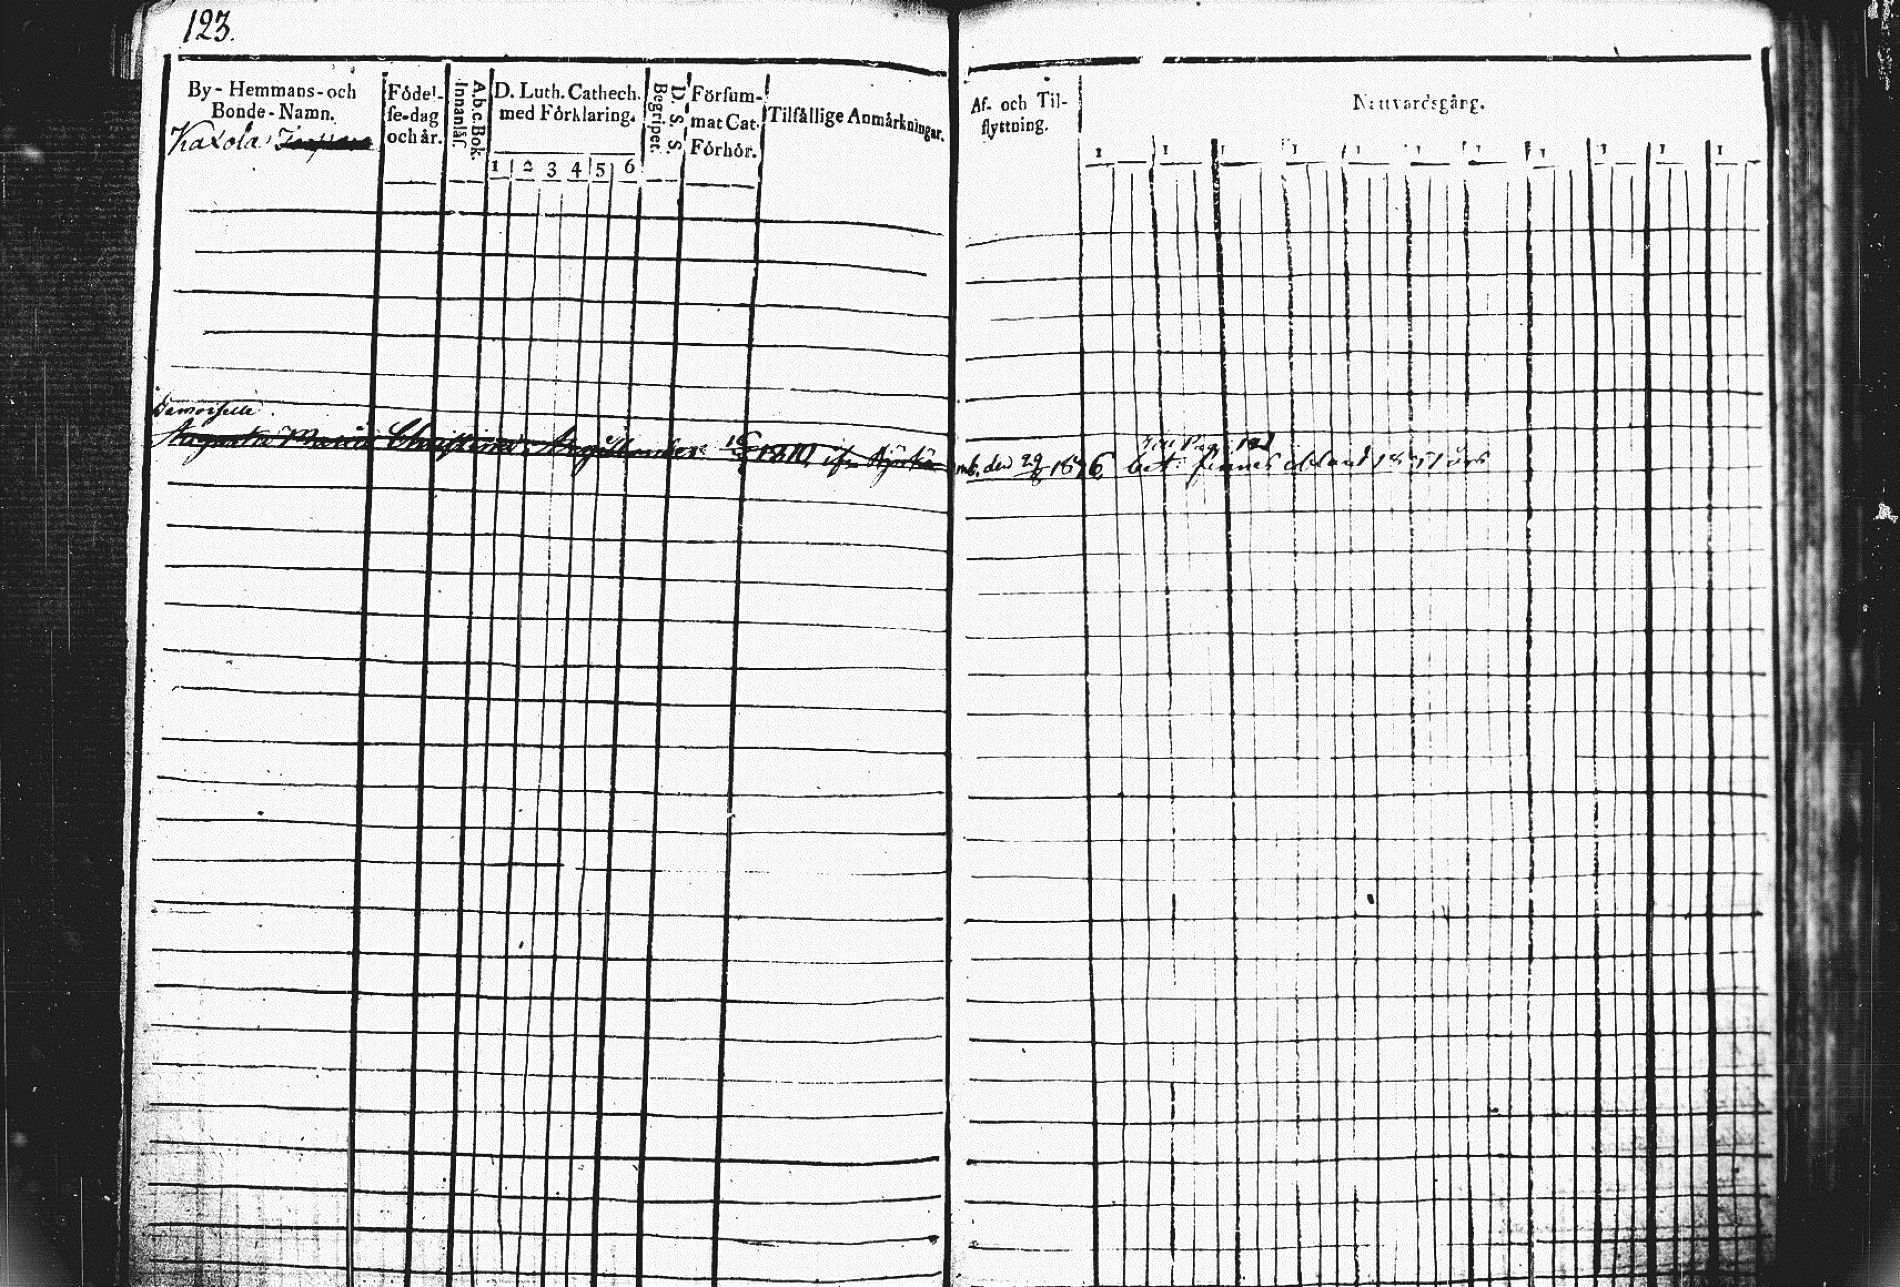 123.
By-Hemmans-och
Bonde-Namn.
Kaxola
Födel-
se-dag
och år.
A.b.c. Bok.
Innanläs.
D. Luth. Cathech.
med Förklaring.
1 2 3 4 5 6
D. S. S.
Begripet.
Försum-
mat Cat.
Förhör.
Tilfällige Anmärkningar.
Af- och Til-
flyttning.
Nattvardsgång.
1 1 1 1 1 1 1 1 1 1 1
Damoiselle
Augusta Maria Christina 1810
den 29 1836 bet: finnes bland
Pag: